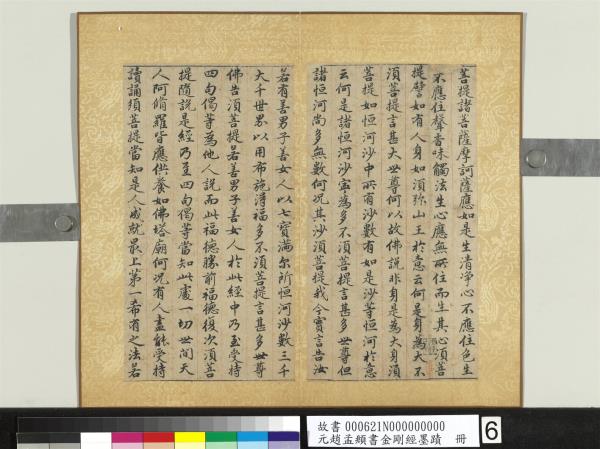 菩提諸菩薩摩訶薩應如是生清淨心不應住色生
心不應住聲香味觸法生心應無所住而生其心須菩
提譬如有人身如須弥山王於意云何是身為大不
須菩提言甚大世尊何以故佛說非身是為大身須
菩提如恒河沙中所有沙數有如是沙等恒河於意
云何是諸恒河沙寧為多不須菩提言甚多世尊但
諸恒河尚多無數何况其沙須菩提我今實言告汝
若有善男子善女人以七寶滿尔所恒河沙數三千
大千世界以用布施得福多不須菩提言甚多世尊
佛告須菩提若善男子善女人於此經中乃至受持
四句偈等為他人說而此福德勝前福德復次須菩
提隨說是經乃至四句偈等當知此處一切世間天
人阿脩羅皆應供養如佛塔廟何况有人盡能受持
讀誦須菩提當知是人成就最上第一希有之法若
故書 000621N000000000
元趙孟頫書金剛經墨蹟 冊
6